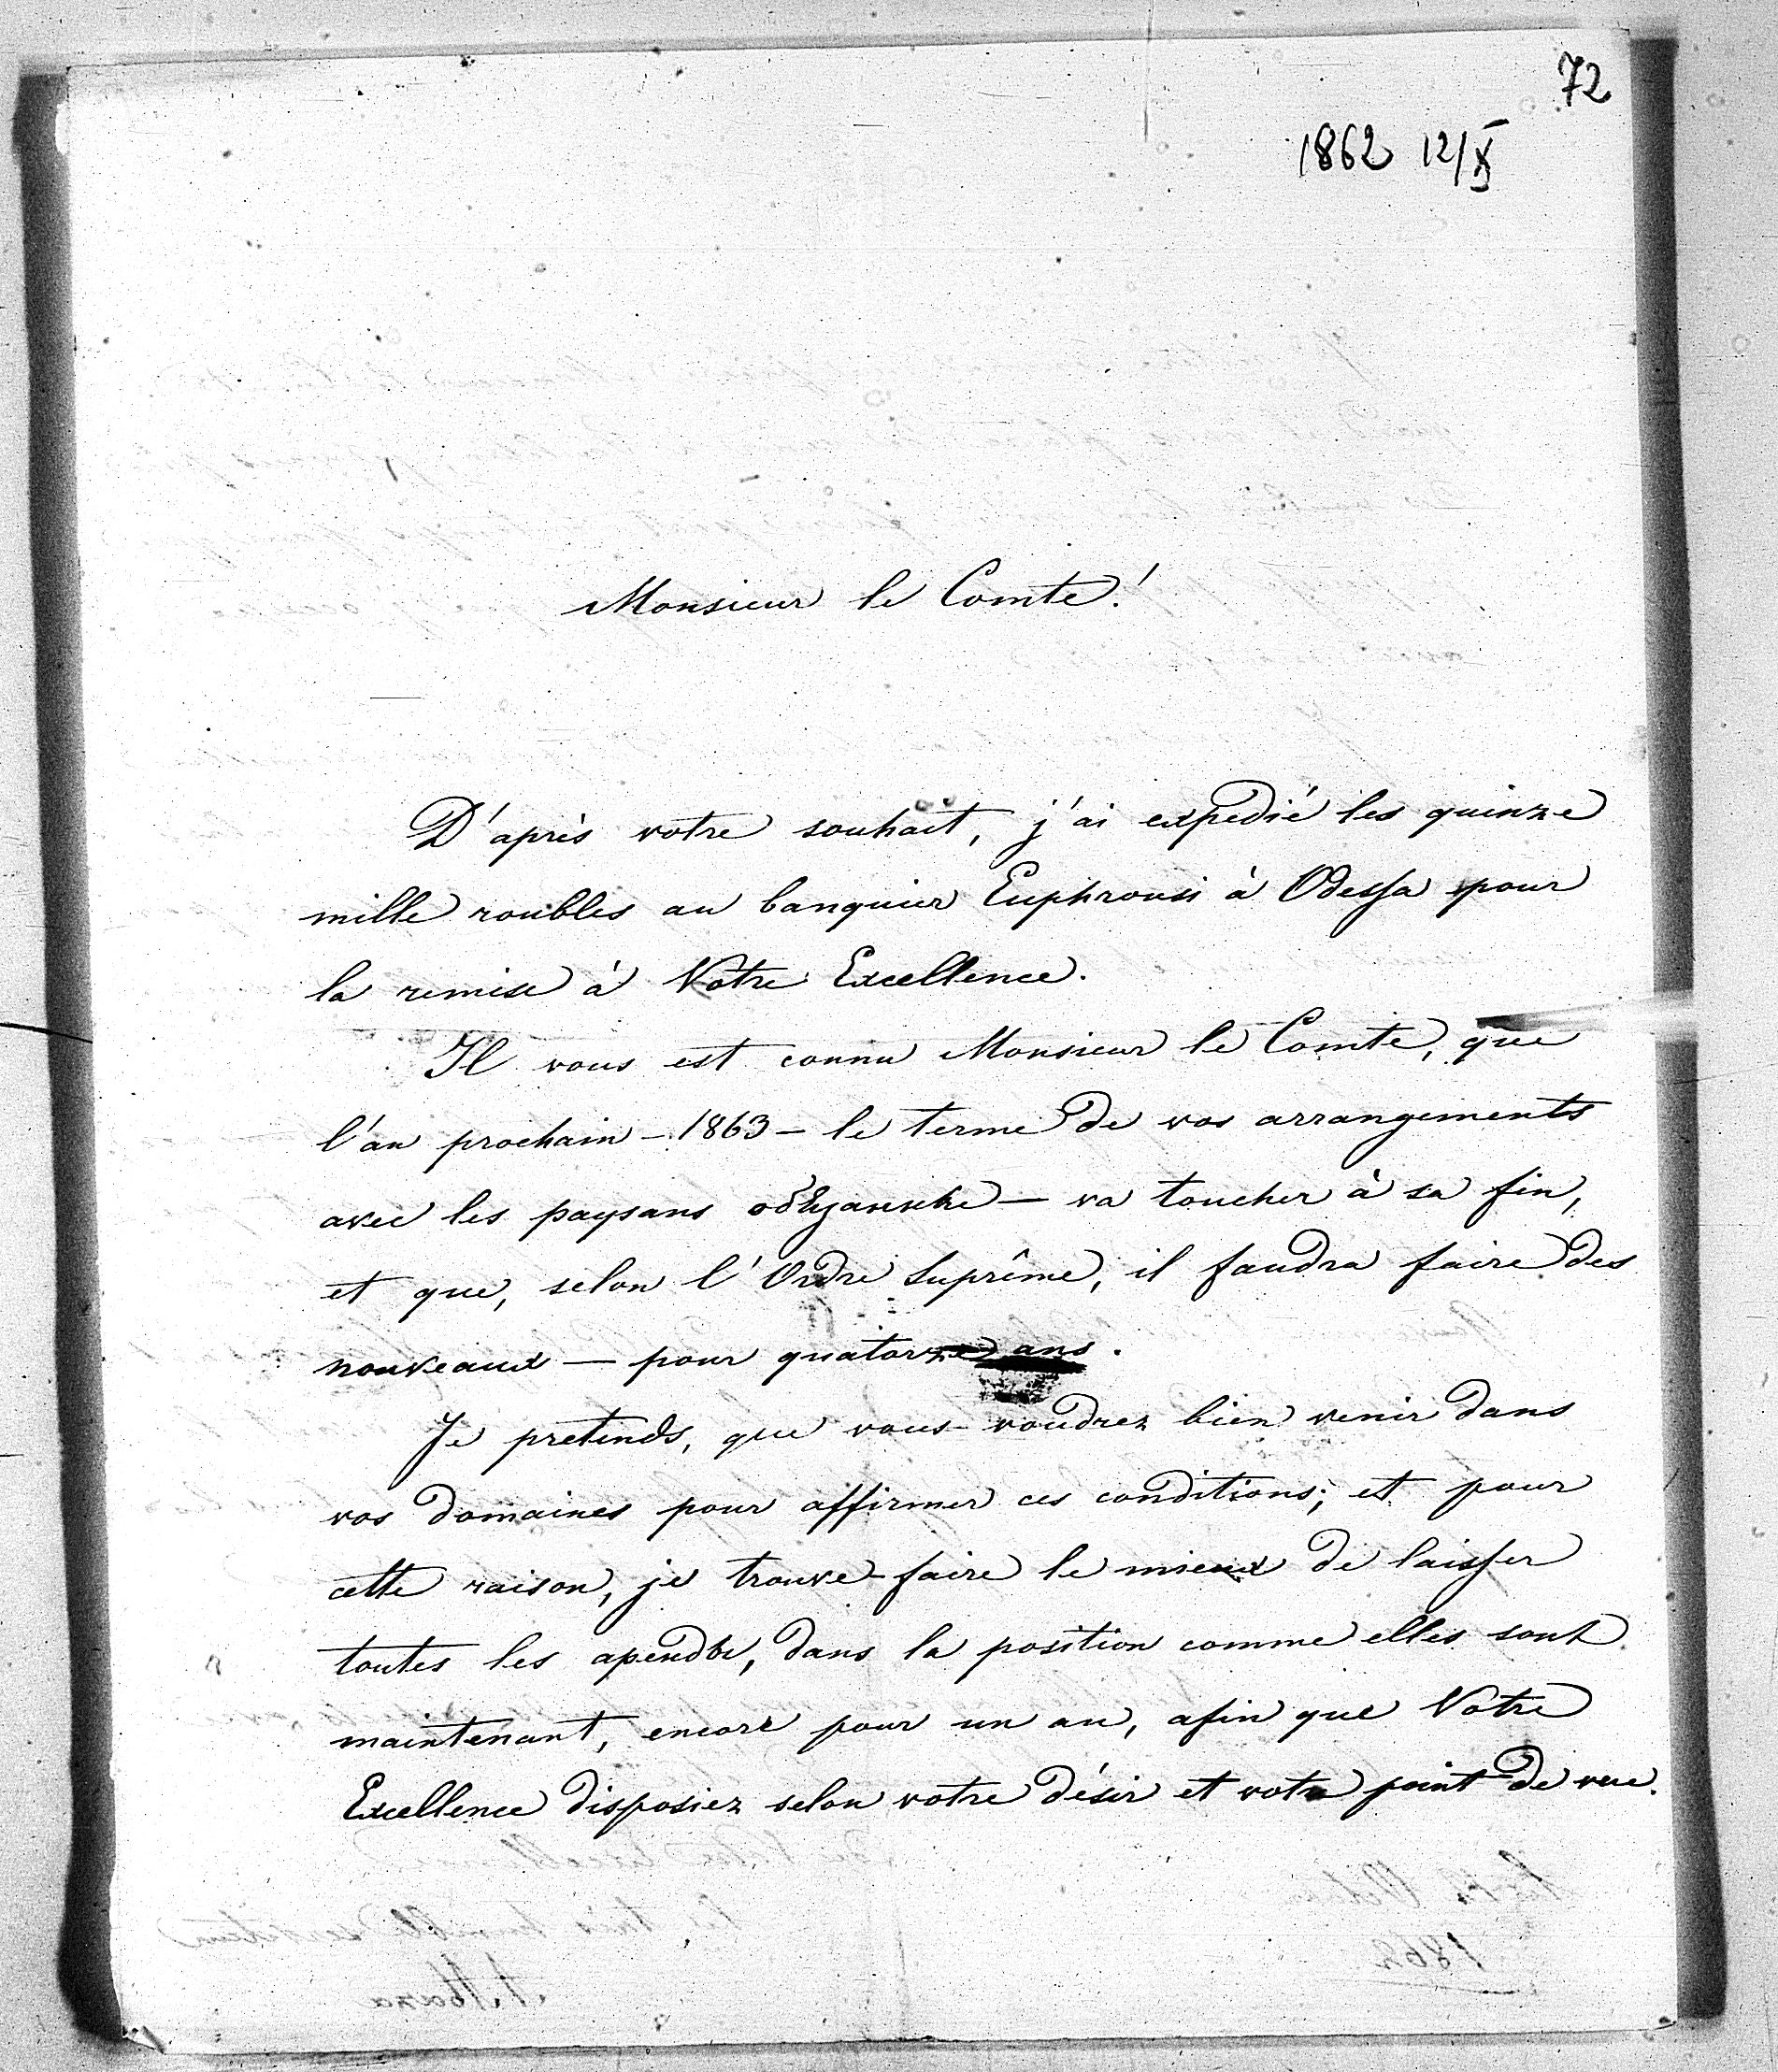 72
1862 12/X
Monsieur le Comte!
D'après votre souhait, j'ai expedié les quinze
mille roubles au banquier Euphrousi à Odessa pour
la remise à Votre Excellence.
Il vous est connu Monsieur le Comte, que
l'an prochain - 1863 - le terme de vos arrangements
avec les paysans — va toucher à sa fin,
et que, selon l'Ordre Suprême, il faudra faire des
nouveaux — pour quatorze ans.
Je pretends, que vous voudrez bien venir dans
vos domaines pour affirmer ces conditions; et pour
cette raison, je trouve faire le mieux de laisser
toutes les , dans la position comme elles sont
maintenant, encore pour un an, afin que Votre
Excellence disposiez selon votre désir et votre point de vue.